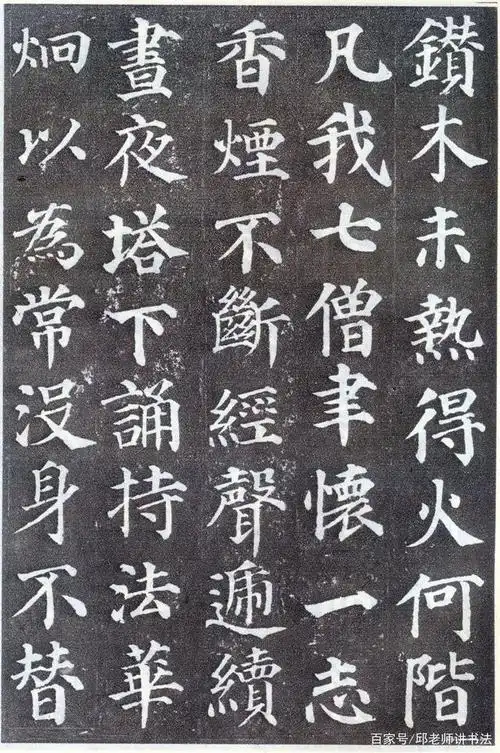 鑚木未熱得火何階
凡我七僧聿懷一志
香煙不斷經聲遞續
晝夜塔下誦持法華
炯以為常没身不替
百家号/邱老师讲书法